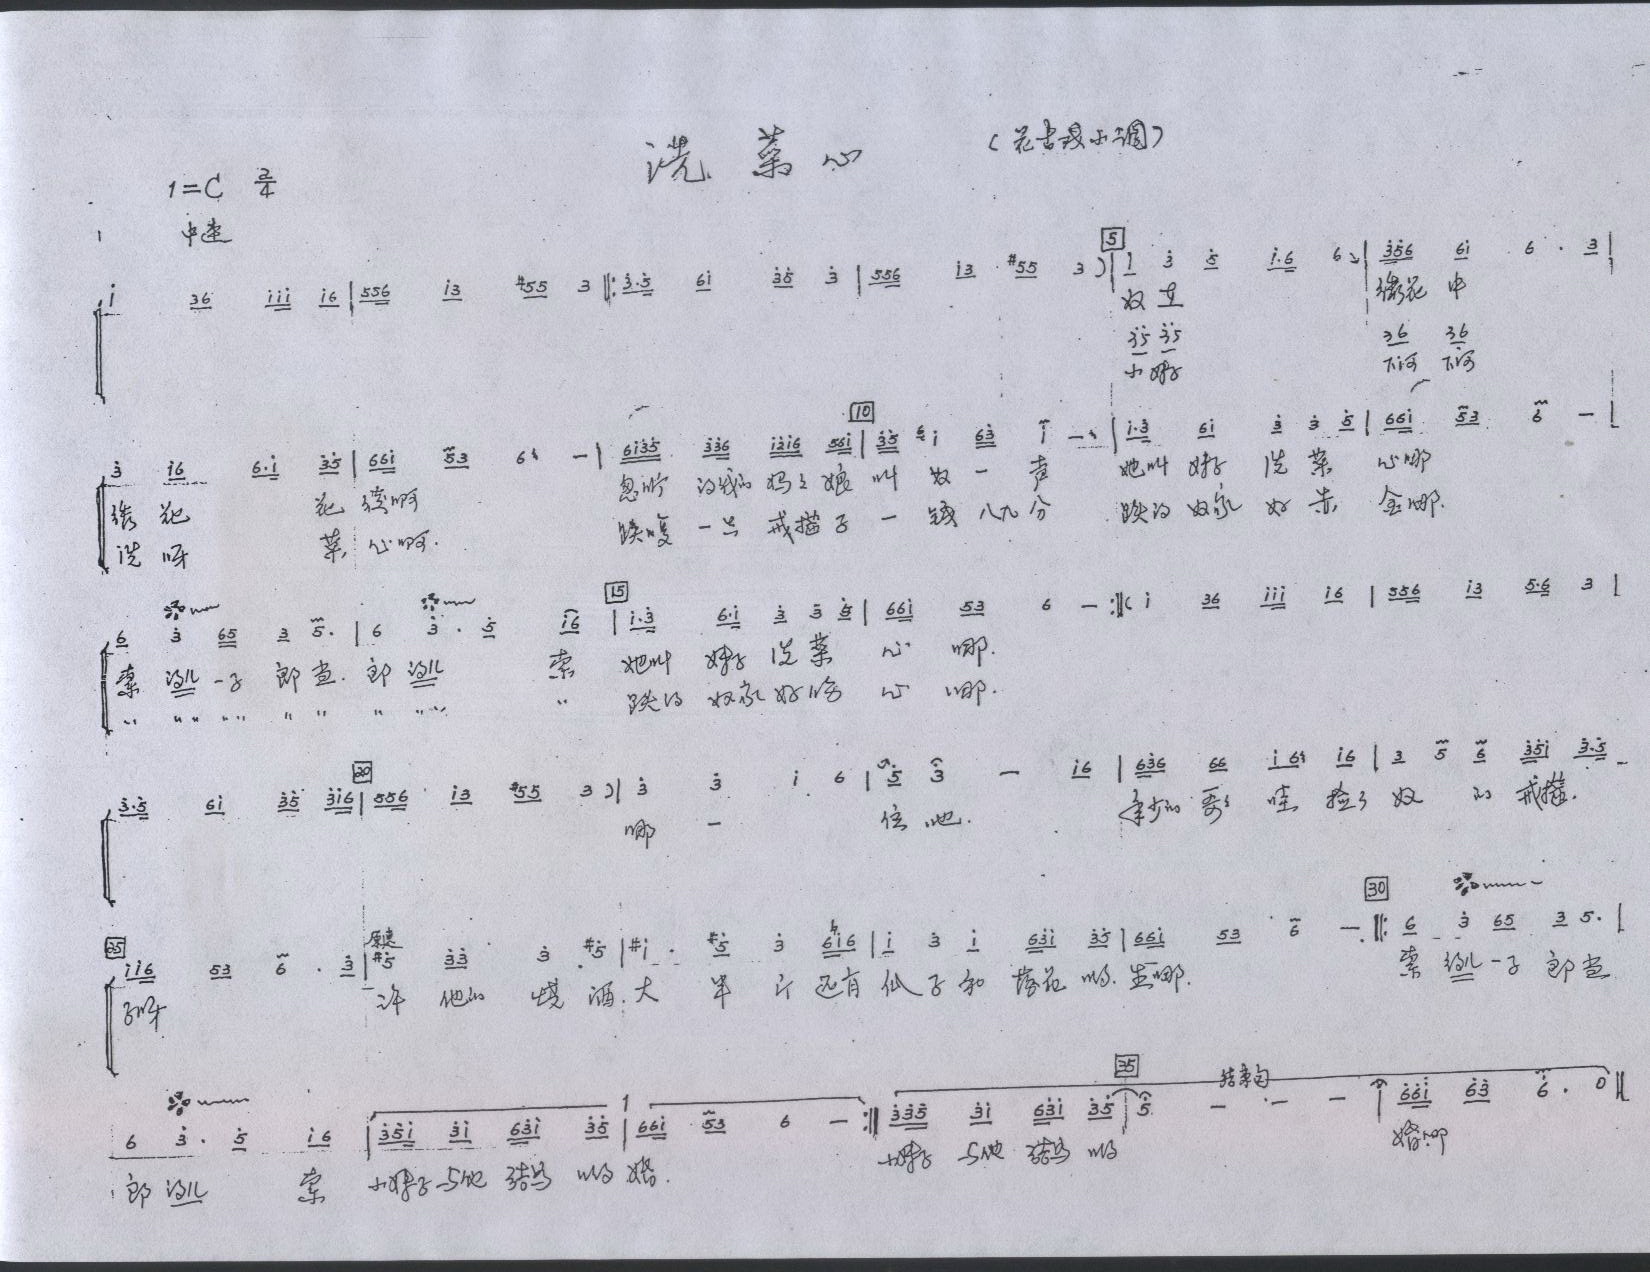 洗菜心 (花古戏小调)
1=C 2/4
中速
5
i 36 iii i6 | 556 i3 #55 3 ‖: 3.5 6i 35 3 | 556 i3 #55 3 ) | i 3 5 i.6 6 | 356 6i 6 . 3 |
奴在 绣花中
35 35 36 36
小妹子 下河 下河
10
3 i6 6.i 35 | 66i 53 6 - | 6i35 336 i2i6 55i | 35 i 63 i - | i.3 6i 3 3 5 | 66i 53 6 - |
绣花 花绫啊 忽听的我的妈之娘叫奴一声 她叫妹子洗菜心哪
洗呀 菜心啊. 一只戒指子一钱八九分 跌的奴家好 金哪.
15
6 3 65 3 5. | 6 3 . 5 i6 | i.3 6.i 3 3 5 | 66i 53 6 - :‖ ( i 36 iii i6 | 556 i3 5.6 3 |
索得儿一子郎当.郎得儿索 她叫妹子洗菜心哪.
" " " " " " " " " 跌的奴家好伤心哪.
20
3.5 6i 35 3i6 | 556 i3 #55 3 ) | 3 3 i 6 | 5 3 - i6 | 636 66 i 6 i6 | 3 5 6 35i 3.5
哪一位他. 年少的哥之哇捡了奴的戒指.
25 30
原速
ii6 53 6 . 3 | #5 33 3 #5 | #i . #5 3 6i6 | i 3 i 63i 35 | 66i 53 6 - ‖: 6 3 65 3 5. |
子呀 许他的烧酒.大半斤还有瓜子和落花的生哪. 索得儿一子郎当
35 结束句
6 3 . 5 i6 | 35i 3i 63i 35 | 66i 53 6 - :‖ 335 3i 63i 35 | 5 - - - | 66i 63 6 . 0 ‖
郎得儿索 小妹子与他结为的婚. 小妹子与他结为的 婚哪